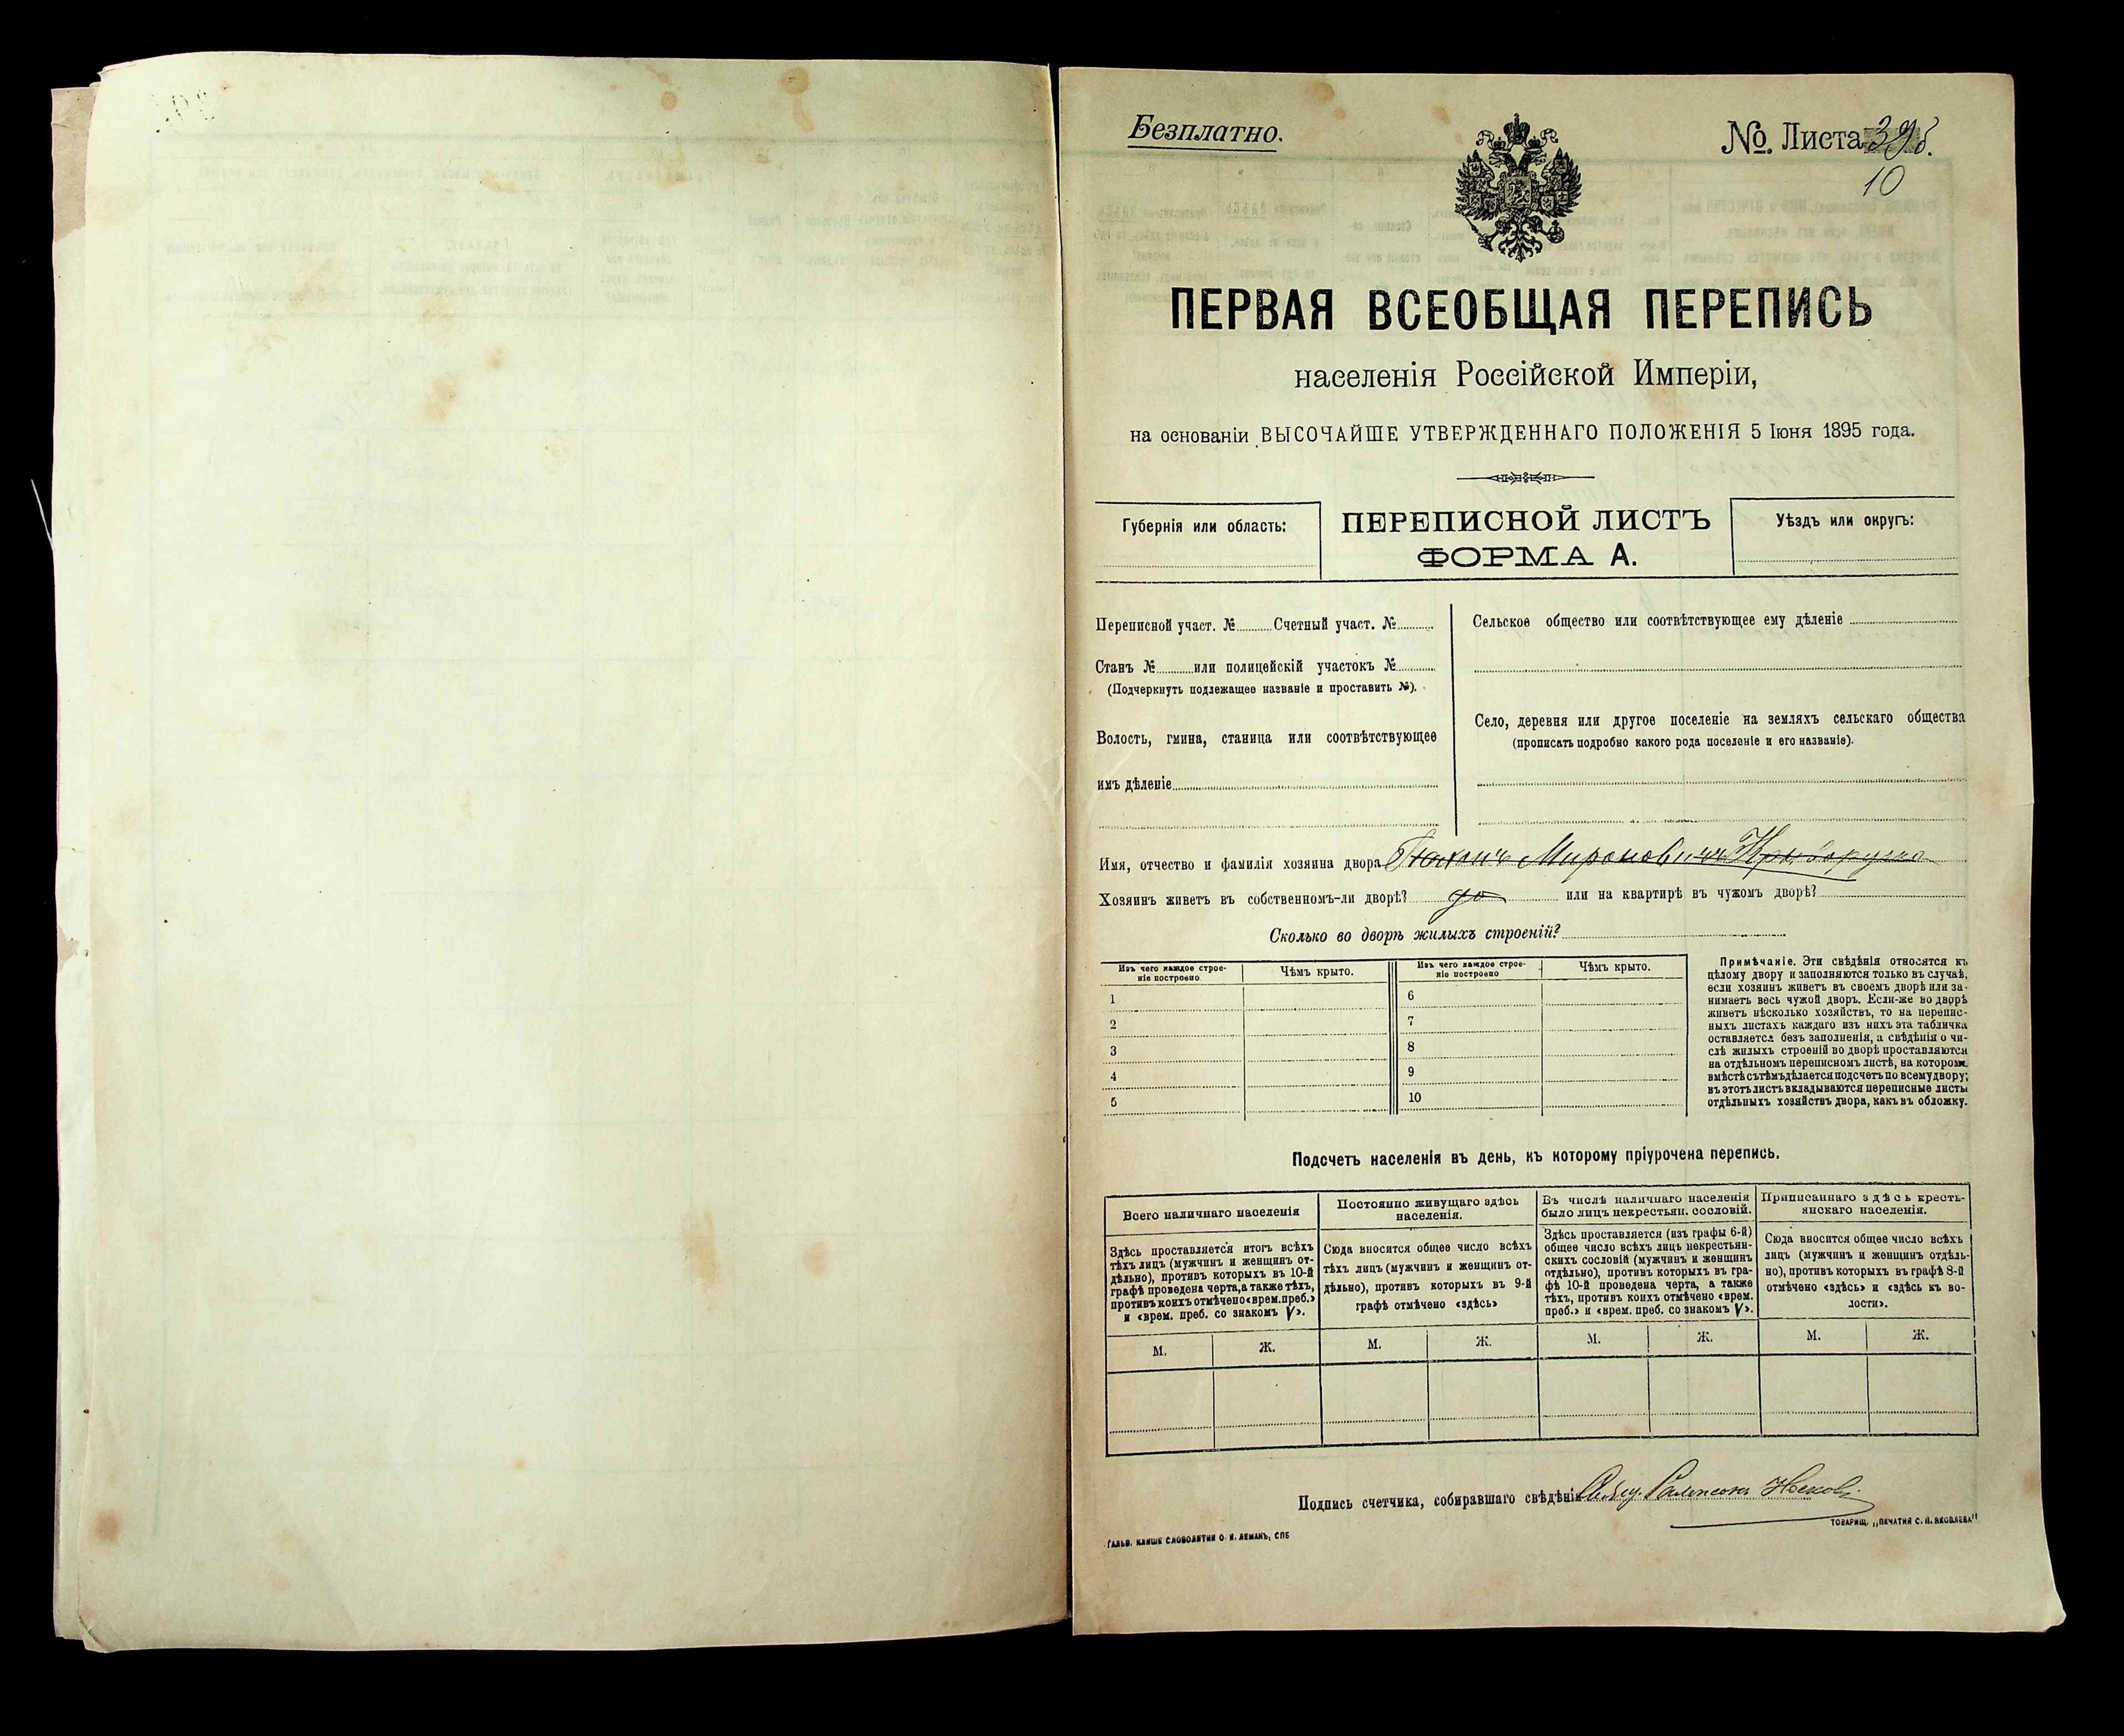 Безплатно.
№. Листа
10
ПЕРВАЯ ВСЕОБЩАЯ ПЕРЕПИСЬ
населенія Россійской Имперіи,
на основаніи ВЫСОЧАЙШЕ УТВЕРЖДЕННАГО ПОЛОЖЕНІЯ 5 Іюня 1895 года.
Губернія или область:
ПЕРЕПИСНОЙ ЛИСТЪ
ФОРМА А.
Уѣздъ или округъ:
Переписной участ. № Счетный участ. №
Станъ № или полицейскій участокъ №
(Подчеркнуть подлежащее названіе и проставить №).
Волость, гмина, станица или соотвѣтствующее
имъ дѣленіе
Сельское общество или соотвѣтствующее ему дѣленіе
Село, деревня или другое поселеніе на земляхъ сельскаго общества
(прописать подробно какого рода поселеніе и его названіе).
Имя, отчество и фамилія хозяина двора Мироновичъ
Хозяинъ живетъ въ собственномъ-ли дворѣ? да или на квартирѣ въ чужомъ дворѣ?
Сколько во дворѣ жилыхъ строеній?
Изъ чего каждое строе-
ніе построено
Чѣмъ крыто.
Изъ чего каждое строе-
ніе построено
Чѣмъ крыто.
1
2
3
4
5
6
7
8
9
10
Примѣчаніе. Эти свѣдѣнія относятся къ
цѣлому двору и заполняются только въ случаѣ,
если хозяинъ живетъ въ своемъ дворѣ или за-
нимаетъ весь чужой дворъ. Если-же во дворѣ
живетъ нѣсколько хозяйствъ, то на перепис-
ныхъ листахъ каждаго изъ нихъ эта табличка
оставляется безъ заполненія, а свѣдѣнія о чи-
слѣ жилыхъ строеній во дворѣ проставляются
на отдѣльномъ переписномъ листѣ, на которомъ
вмѣстѣ съ тѣмъ дѣлается подсчетъ по всему двору;
въ этотъ листъ вкладываются переписные листы
отдѣльныхъ хозяйствъ двора, какъ въ обложку.
Подсчетъ населенія въ день, къ которому пріурочена перепись.
Всего наличнаго населенія
Здѣсь проставляется итогъ всѣхъ
тѣхъ лицъ (мужчинъ и женщинъ от-
дѣльно), противъ которыхъ въ 10-й
графѣ проведена черта, а также тѣхъ,
противъ коихъ отмѣчено «врем. преб.»
и «врем. преб. со знакомъ V».
Постоянно живущаго здѣсь
населенія.
Сюда вносится общее число всѣхъ
тѣхъ лицъ (мужчинъ и женщинъ от-
дѣльно), противъ которыхъ въ 9-й
графѣ отмѣчено «здѣсь»
Въ числѣ наличнаго населенія
было лицъ некрестьян. сословій.
Здѣсь проставляется (изъ графы 6-й)
общее число всѣхъ лицъ некрестьян-
скихъ сословій (мужчинъ и женщинъ
отдѣльно), противъ которыхъ въ гра-
фѣ 10-й проведена черта, а также
тѣхъ, противъ коихъ отмѣчено «врем.
преб.» и «врем. преб. со знакомъ V».
Приписаннаго здѣсь кресть-
янскаго населенія.
Сюда вносится общее число всѣхъ
лицъ (мужчинъ и женщинъ отдѣль-
но), противъ которыхъ въ графѣ 8-й
отмѣчено «здѣсь» и «здѣсь къ во-
лости».
М. Ж. М. Ж. М. Ж. М. Ж.
Подпись счетчика, собиравшаго свѣдѣнія
ГАЛЬВ. КЛИШЕ СЛОВОЛИТНИ О. И. ЛЕМАНЪ, СПБ
ТОВАРИЩ. „ПЕЧАТНЯ С. П. ЯКОВЛЕВА"